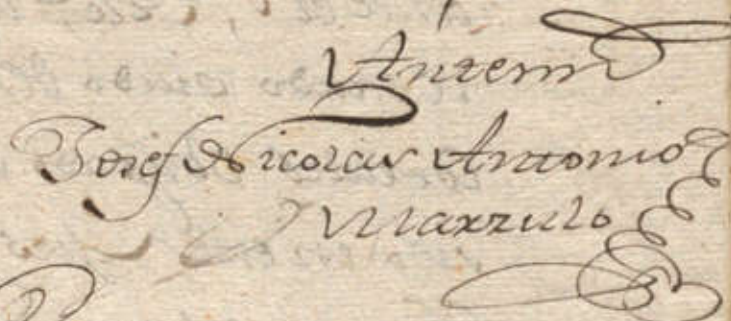 Ante mi
Joseph Nicolas Antonio
Marzulo